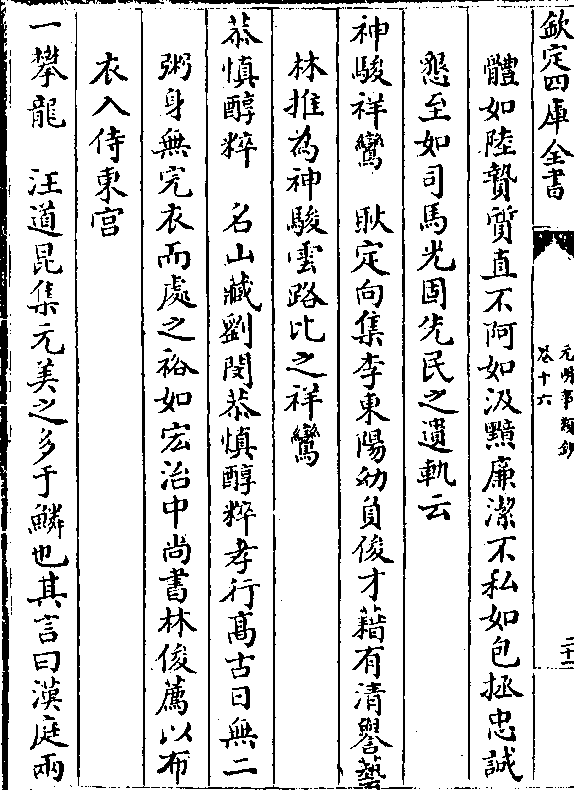 欽定四庫全書
元明事類鈔
卷十六
二十一
體如陸贄質直不阿如汲黯廉潔不私如包拯忠誠
懇至如司馬光固先民之遺軌云
神駿祥鸞　耿定向集李東陽幼負俊才藉有清譽藝
林推為神駿雲路比之祥鸞
恭慎醇粹　名山藏劉閔恭慎醇粹孝行髙古日無二
粥身無完衣而處之裕如宏治中尚書林俊薦以布
衣入侍東宮
一攀龍　汪道昆集元美之多于鱗也其言曰漢庭兩